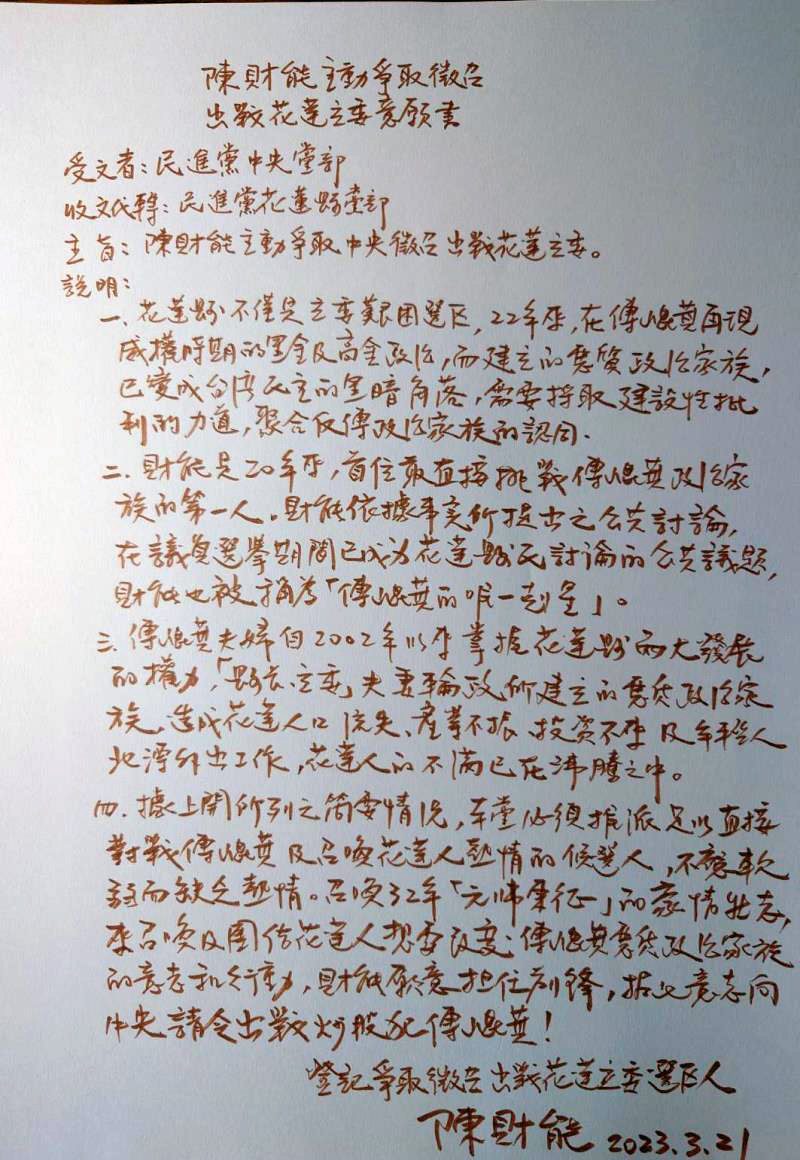 陳財能主動爭取徵召
出戰花蓮立委意願書
受文者：民進黨中央黨部
收文代轉：民進黨花蓮縣黨部
主旨：陳財能主動爭取中央徵召出戰花蓮立委。
說明：
一、花蓮縣不僅是立委艱困選区，22年來，在傅崐萁再現
威權時期的黑金及高金政治，而建立的惡質政治家族，
已變成台湾民主的黑暗角落，需要採取建設性批
判的力道，聚合反傅政治家族的認同.
二、財能是20年來，首位敢直接挑戰傅崐萁政治家
族的第一人。財能依據事实所提出之公共討論，
在議員選舉期間已成为花蓮縣民討論的公共議題，
財能也被稱為「傅崐萁的唯一剋星」。
三、傅崐萁夫婦自2002年以來掌握花蓮縣兩大發展
的權力，「縣長、立委」夫妻輪政所建立的惡质政治家
族，造成花蓮人口流失、產業不振、投资不來及年輕人
北漂外出工作，花蓮人的不滿已在沸騰之中。
四、據上開所列之简要情況，本黨必须推派足以直接
對戰傅崐萁及召喚花蓮人熱情的候選人，不應軟
弱而缺乏熱情。召喚32年「元帅東征」的豪情壯志，
來召喚及團结花蓮人想要改变傅崐萁惡质政治家族
的意志和行動，財能願意担任前鋒，據此意志向
中央請令出戰炒股犯傅崐萁！
登記爭取徵召出戰花蓮立委選区人
陳財能 2023.3.21